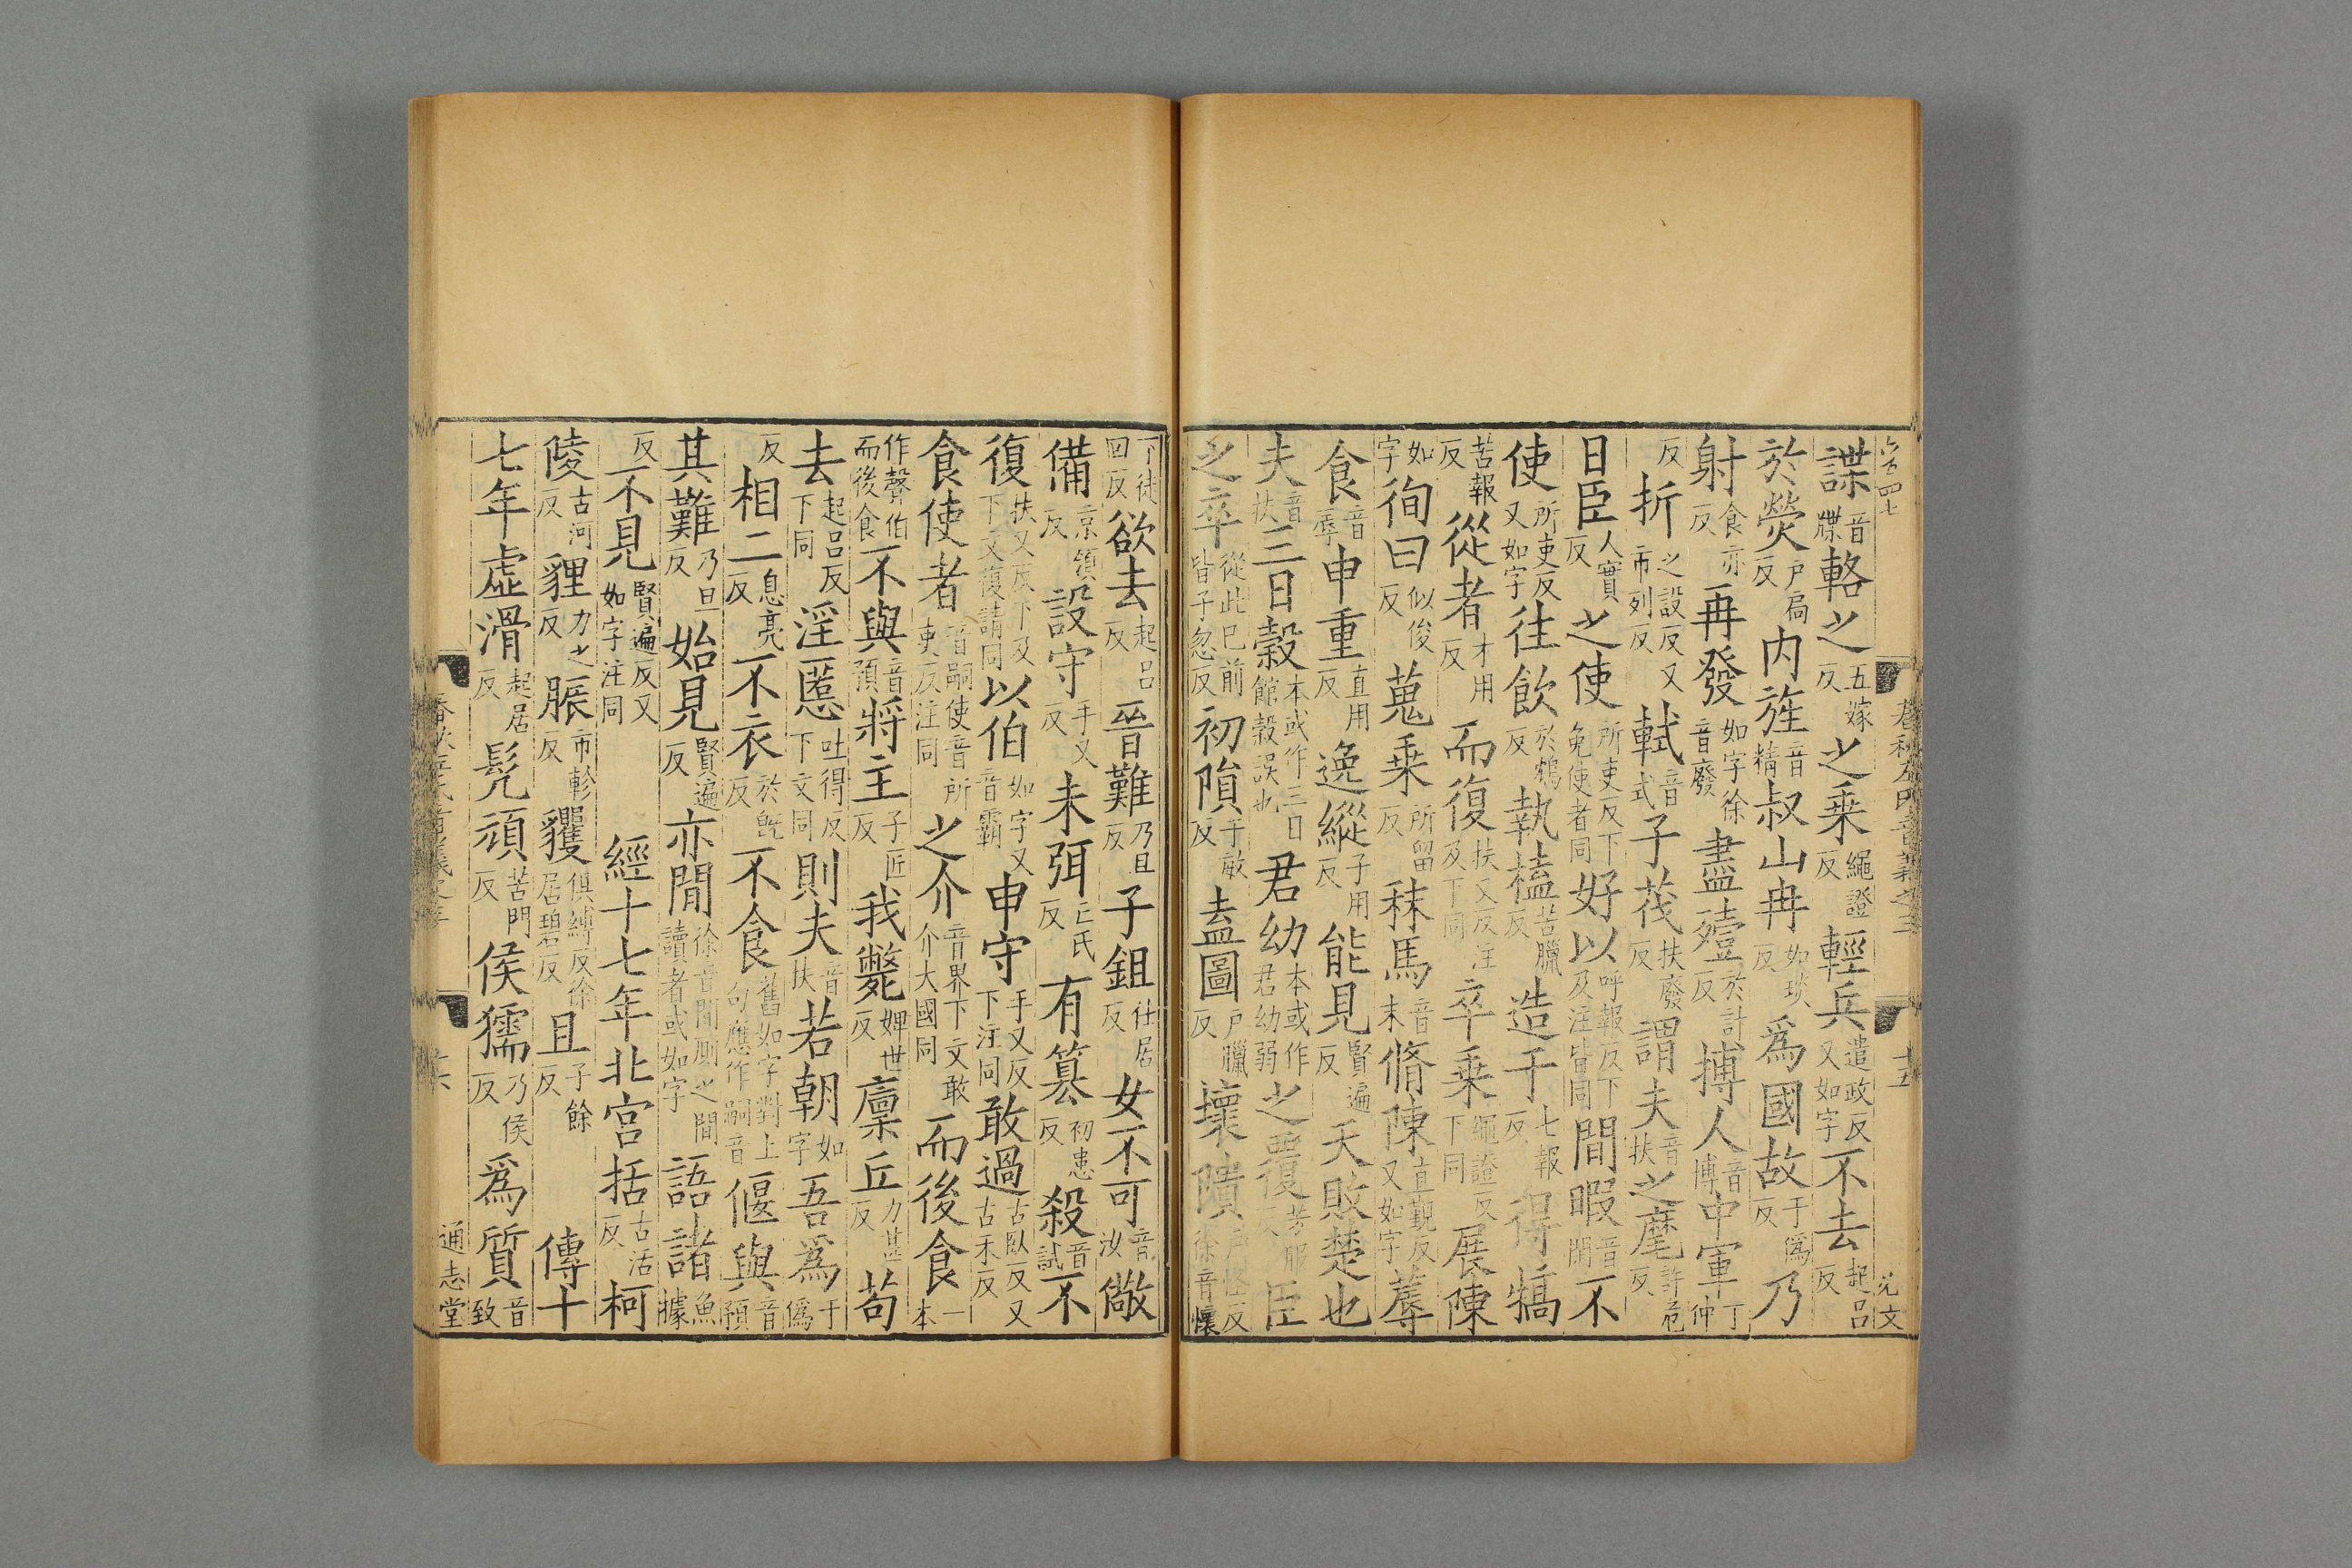 諜音牒輅之五嫁反之乗繩證反輕兵遣政反又如字不去起呂反
於熒戶扃反内旌音精叔山冉如琰反爲國故于僞反乃
射食亦反再發如字徐音廢盡殪於計反搏人音博中軍丁仲
反折之設反又市列反軾音式子茷扶廢反謂夫音扶之麾許危反
日臣人實反之使所吏反下免使者同好以呼報反下及注皆同間暇音閑不
使所吏反又如字往飲於鴆反執榼苦臘反造于七報反得犒
苦報反從者才用反而復扶又反注及下同卒乗繩證反下同展陳
如字徇曰似俊反蒐乗所留反秣馬音末脩陳直覲反又如字蓐
食音辱申重直用反逸縱子用反能見賢遍反天敗楚也
夫音扶三日穀本或作三日館穀誤也君幼本或作君幼弱之覆芳服反臣
之卒從此已前皆子忽反初隕于敏反盍圖戶臘反壞隤戶怪反徐音懷
下徒回反欲去起呂反晉難乃旦反子鉏仕居反女不可音汝儆
備京領反設守手又反未弭亡氏反有篡初患反殺音試不
復扶又反下及下文復請同以伯如字又音霸申守手又反下注同敢過古臥反又古禾反
食使者音嗣使音所吏反注同之介音界下文敢介大國同而後食一本
作聲伯而後食不與音預將主子匠反我斃婢世反廩丘力甚反苟
去起呂反下同淫慝吐得反下文同則夫音扶若朝如字吾爲于僞
反相二息亮反不衣於既反不食舊如字對上句應作嗣音偃與音預
其難乃旦反始見賢遍反亦閒徐音閒厠之閒讀者或如字語諸魚據
反不見賢遍反又如字注同經十七年北宮括古活反柯
陵古河反貍力之反脤市軫反貜俱縛反徐居碧反且子餘反傳十
七年虛滑起居反髠頑苦門反侯獳乃侯反爲質音致
通志堂